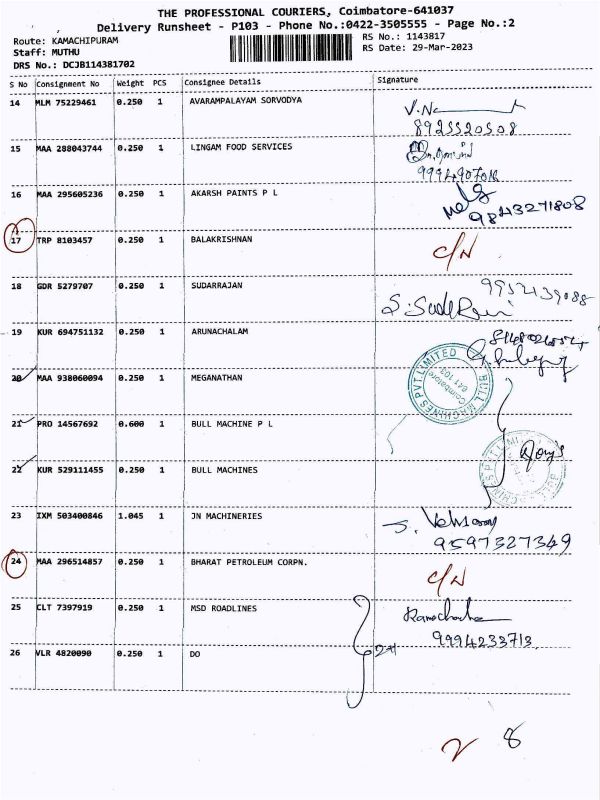 THE PROFESSIONAL COURIERS, Coimbatore-641037
Delivery Runsheet - P103 - Phone No.:0422-3505555 - Page No.:2
Route: KAMACHIPURAM
RS No.: 1143817
Staff: MUTHU
RS Date: 29-Mar-2023
DRS No.: DCJB114381702
S No Consignment No Weight PCS Consignee Details Signature
14 MLM 75229461 0.250 1 AVARAMPALAYAM SORVODYA
8925520508
15 MAA 288043744 0.250 1 LINGAM FOOD SERVICES
16 MAA 295605236 0.250 1 AKARSH PAINTS P L
9843271808
17 TRP 8103457 0.250 1 BALAKRISHNAN C/N
18 GDR 5279707 0.250 1 SUDARRAJAN
19 KUR 694751132 0.250 1 ARUNACHALAM
20 MAA 938060094 0.250 1 MEGANATHAN
BULL MACHINES PVT. LIMITED
Coimbatore
641 103
21 PRO 14567692 0.600 1 BULL MACHINE P L
22 KUR 529111455 0.250 1 BULL MACHINES
23 IXM 503400846 1.045 1 JN MACHINERIES
9597327349
24 MAA 296514857 0.250 1 BHARAT PETROLEUM CORPN. C/N
25 CLT 7397919 0.250 1 MSD ROADLINES
9994233713
26 VLR 4820090 0.250 1 DO
8